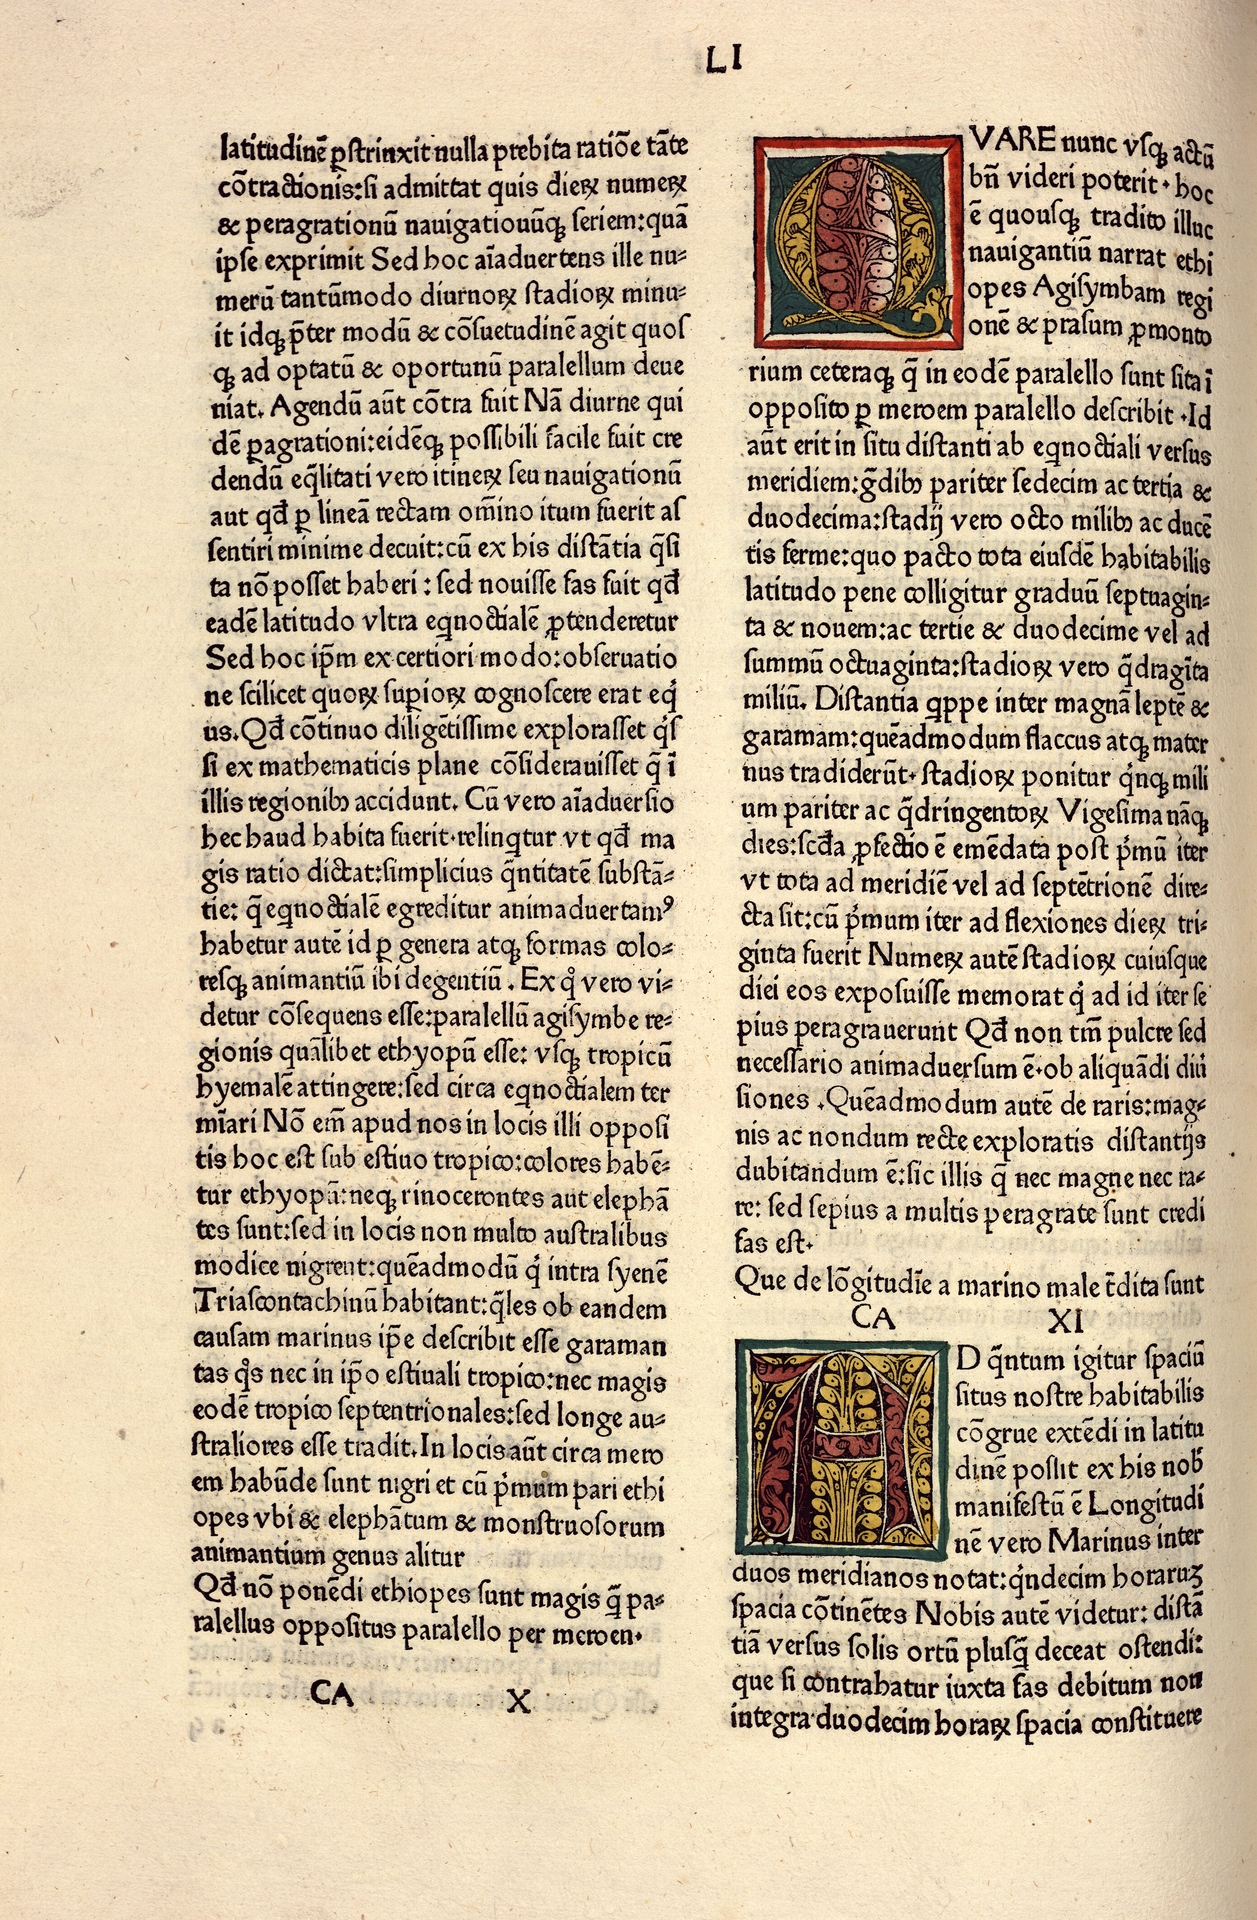 LI
latitudinē ꝑstrinxit nulla prebita ratiōe tāte
cōtractionis:si admittat quis dieꝝ numeꝝ
& peragrationū nauigatiouūqꝫ seriem:quā
ipse exprimit Sed hoc aīaduertens ille nu⸗
merū tantūmodo diurnoꝝ stadioꝝ minu⸗
it idqꝫ p̄ter modū & cōsuetudinē agit quos
qꝫ ad optatū & oportunū paralellum deue
niat. Agendū aūt cōtra fuit Nā diurne qui
dē ꝑagrationi:eidēqꝫ possibili facile fuit cre
dendū eq̄litati vero itineꝝ seu nauigationū
aut qđ ꝑ lineā rectam om̄ino itum fuerit as
sentiri minime decuit:cū ex his distātia q̄si
ta nō posset haberi : sed nouisse fas fuit qđ
eadē latitudo vltra eq̱noctialē ꝓtenderetur
Sed hoc ip̄m ex certiori modo:obseruatio
ne scilicet quoꝝ suꝑioꝝ cognoscere erat eqͥ
us.Qđ cōtinuo diligētissime explorasset qͥs
si ex mathematicis plane cōsiderauisset q̄ ī
illis regionibꝫ accidunt. Cū vero aīaduersio
hec haud habita fuerit·relinq̱tur vt qđ ma
gis ratio dictat:simplicius q̄ntitatē substā⸗
tie: q̄ eq̱noctialē egreditur animaduertamꝰ
habetur autē id ꝑ genera atqꝫ formas colo⸗
resqꝫ animantiū ibi degentiū . Ex qͦ vero vi⸗
detur cōsequens esse:paralellū agisymbe re⸗
gionis quālibet ethyopū esse: vsqꝫ tropicū
hyemalē attingere:sed circa eq̱noctialem ter
mīari Nō em̄ apud nos in locis illi opposi
tis hoc est sub estiuo tropico:colores habē⸗
tur ethyopū:neqꝫ rinocerontes aut elephā
tes sunt:sed in locis non multo australibus
modice nigrent:quēadmodū qͥ intra syenē
Triascontachinū habitant:q̄les ob eandem
causam marinus ip̄e describit esse garaman
tas qͦs nec in ip̄o estiuali tropico:nec magis
eodē tropico septentrionales:sed longe au⸗
straliores esse tradit.In locis aūt circa mero
em habūde sunt nigri et cū pͥmum pari ethi
opes vbi & elephātum & monstruosorum
animantium genus alitur
Qđ nō ponēdi ethiopes sunt magis q̄ pa⸗
ralellus oppositus paralello per meroen·
CA X
QVARE nunc vsqꝫ actū
bn̄ videri poterit · hoc
ē quousqꝫ tradito illuc
nauigantiū narrat ethi
opes Agisymbam regi
onē & prasum ꝓmonto
rium ceteraqꝫ q̄ in eodē paralello sunt sita ī
opposito ꝑ meroem paralello describit ·Id
aūt erit in situ distanti ab eq̱noctiali versus
meridiem:g̃dibꝫ pariter sedecim ac tertia &
duodecima:stadij vero octo milibꝫ ac ducē
tis ferme:quo pacto tota eiusdē habitabilis
latitudo pene colligitur graduū septuagin⸗
ta & nouem:ac tertie & duodecime vel ad
summū octuaginta:stadioꝝ vero q̄dragīta
miliū. Distantia q̱ppe inter magnā leptē &
garamam:quēadmodum flaccus atqꝫ mater
nus tradiderūt· stadioꝝ ponitur qͥnqꝫ mili
um pariter ac q̄dringentoꝝ Vigesima nāqꝫ
dies:scđa ꝓfectio ē emēdata post pͥmū iter
vt tota ad meridiē vel ad septētrionē dire⸗
cta sit:cū pͥmum iter ad flexiones dieꝝ tri⸗
ginta fuerit Numeꝝ autē stadioꝝ cuiusque
diei eos exposuisse memorat qͥ ad id iter se
pius peragrauerunt Qđ non tm̄ pulcre sed
necessario animaduersum ē·ob aliquādi diuͥ
siones .Quēadmodum autē de raris:mag⸗
nis ac nondum recte exploratis distantijs
dubitandum ē:sic illis q̄ nec magne nec ra⸗
re: sed sepius a multis peragrate sunt credi
fas est·
Que de lōgitudīe a marino male t̃dita sunt
CA XI
AD q̄ntum igitur spaciū
situs nostre habitabilis
cōgrue extēdi in latitu
dinē possit ex his nobͥ
manifestū ē Longitudi
nē vero Marinus inter
duos meridianos notat:qͥndecim horaruꝫ
spacia cōtinētes Nobis autē videtur: distā
tiā versus solis ortū plusq̄ deceat ostendi:
que si contrahatur iuxta fas debitum non
integra duodecim horaꝝ spacia constituere